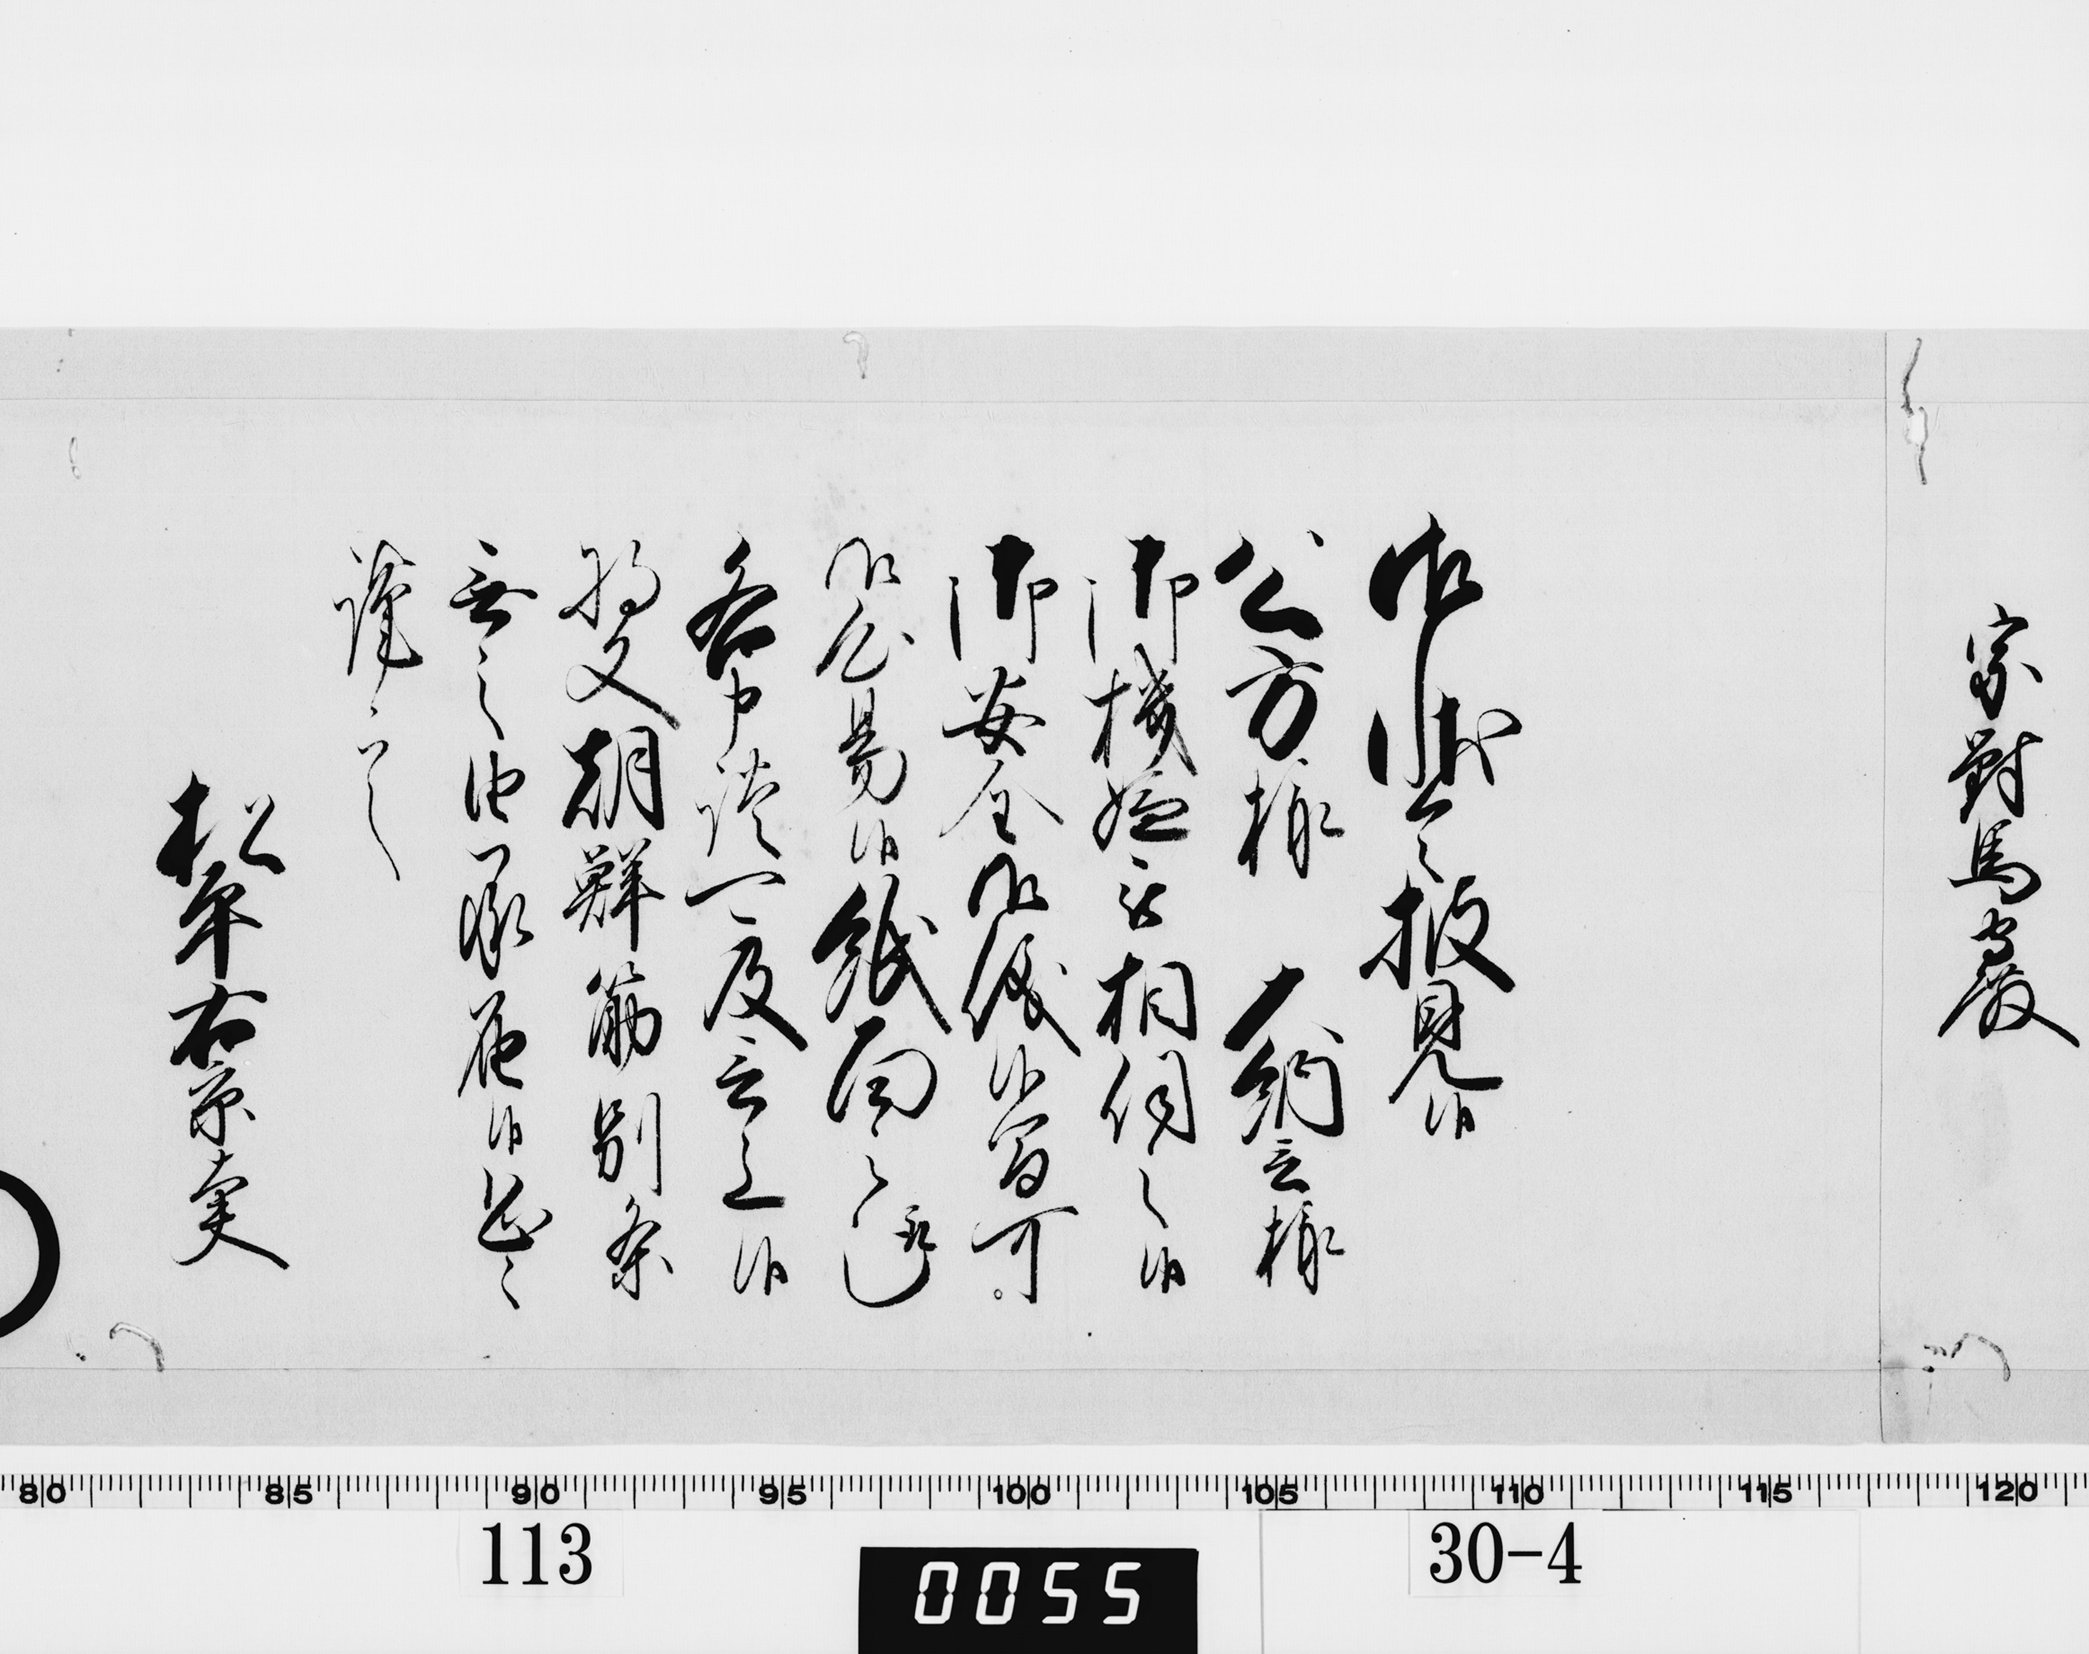 宗對馬守殿
御状令披見候
公方様 大納言様
御機嫌被相伺之候
御安全御儀候間可
御心易候紙面之趣
各申談可及言上候
将又朝鮮筋別条
無之由承届候恐々
謹言
松平右京大夫
80 85 90 95 100 105 110 115 120
113 0055 30-4